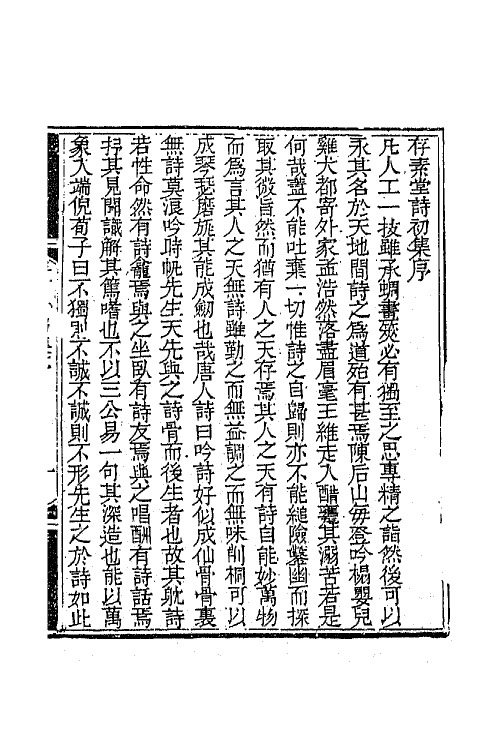 存素堂詩初集序
凡人工一技雖承蜩畫筴必有獨至之思專精之詣然後可以
永其名於天地間詩之爲道殆有甚焉陳后山每登吟榻嬰兒
雞犬都寄外家孟浩然落盡眉毫王維走入醋甕其溺苦若是
何哉蓋不能吐棄一切惟詩之自歸則亦不能縋險鑿幽而探
取其微旨然而猶有人之天存焉其人之天有詩自能妙萬物
而爲言其人之天無詩雖勤之而無益調之而無味削桐可以
成琴瑟磨旊其能成劒也哉唐人詩曰吟詩好似成仙骨骨裏
無詩莫浪吟時帆先生天先與之詩骨而後生者也故其躭詩
若性命然有詩龕焉與之坐臥有詩友焉與之唱酬有詩話焉
抒其見聞識解其篤嗜也不以三公易一句其深造也能以萬
象入端倪荀子曰不獨則不誠不誠則不形先生之於詩如此